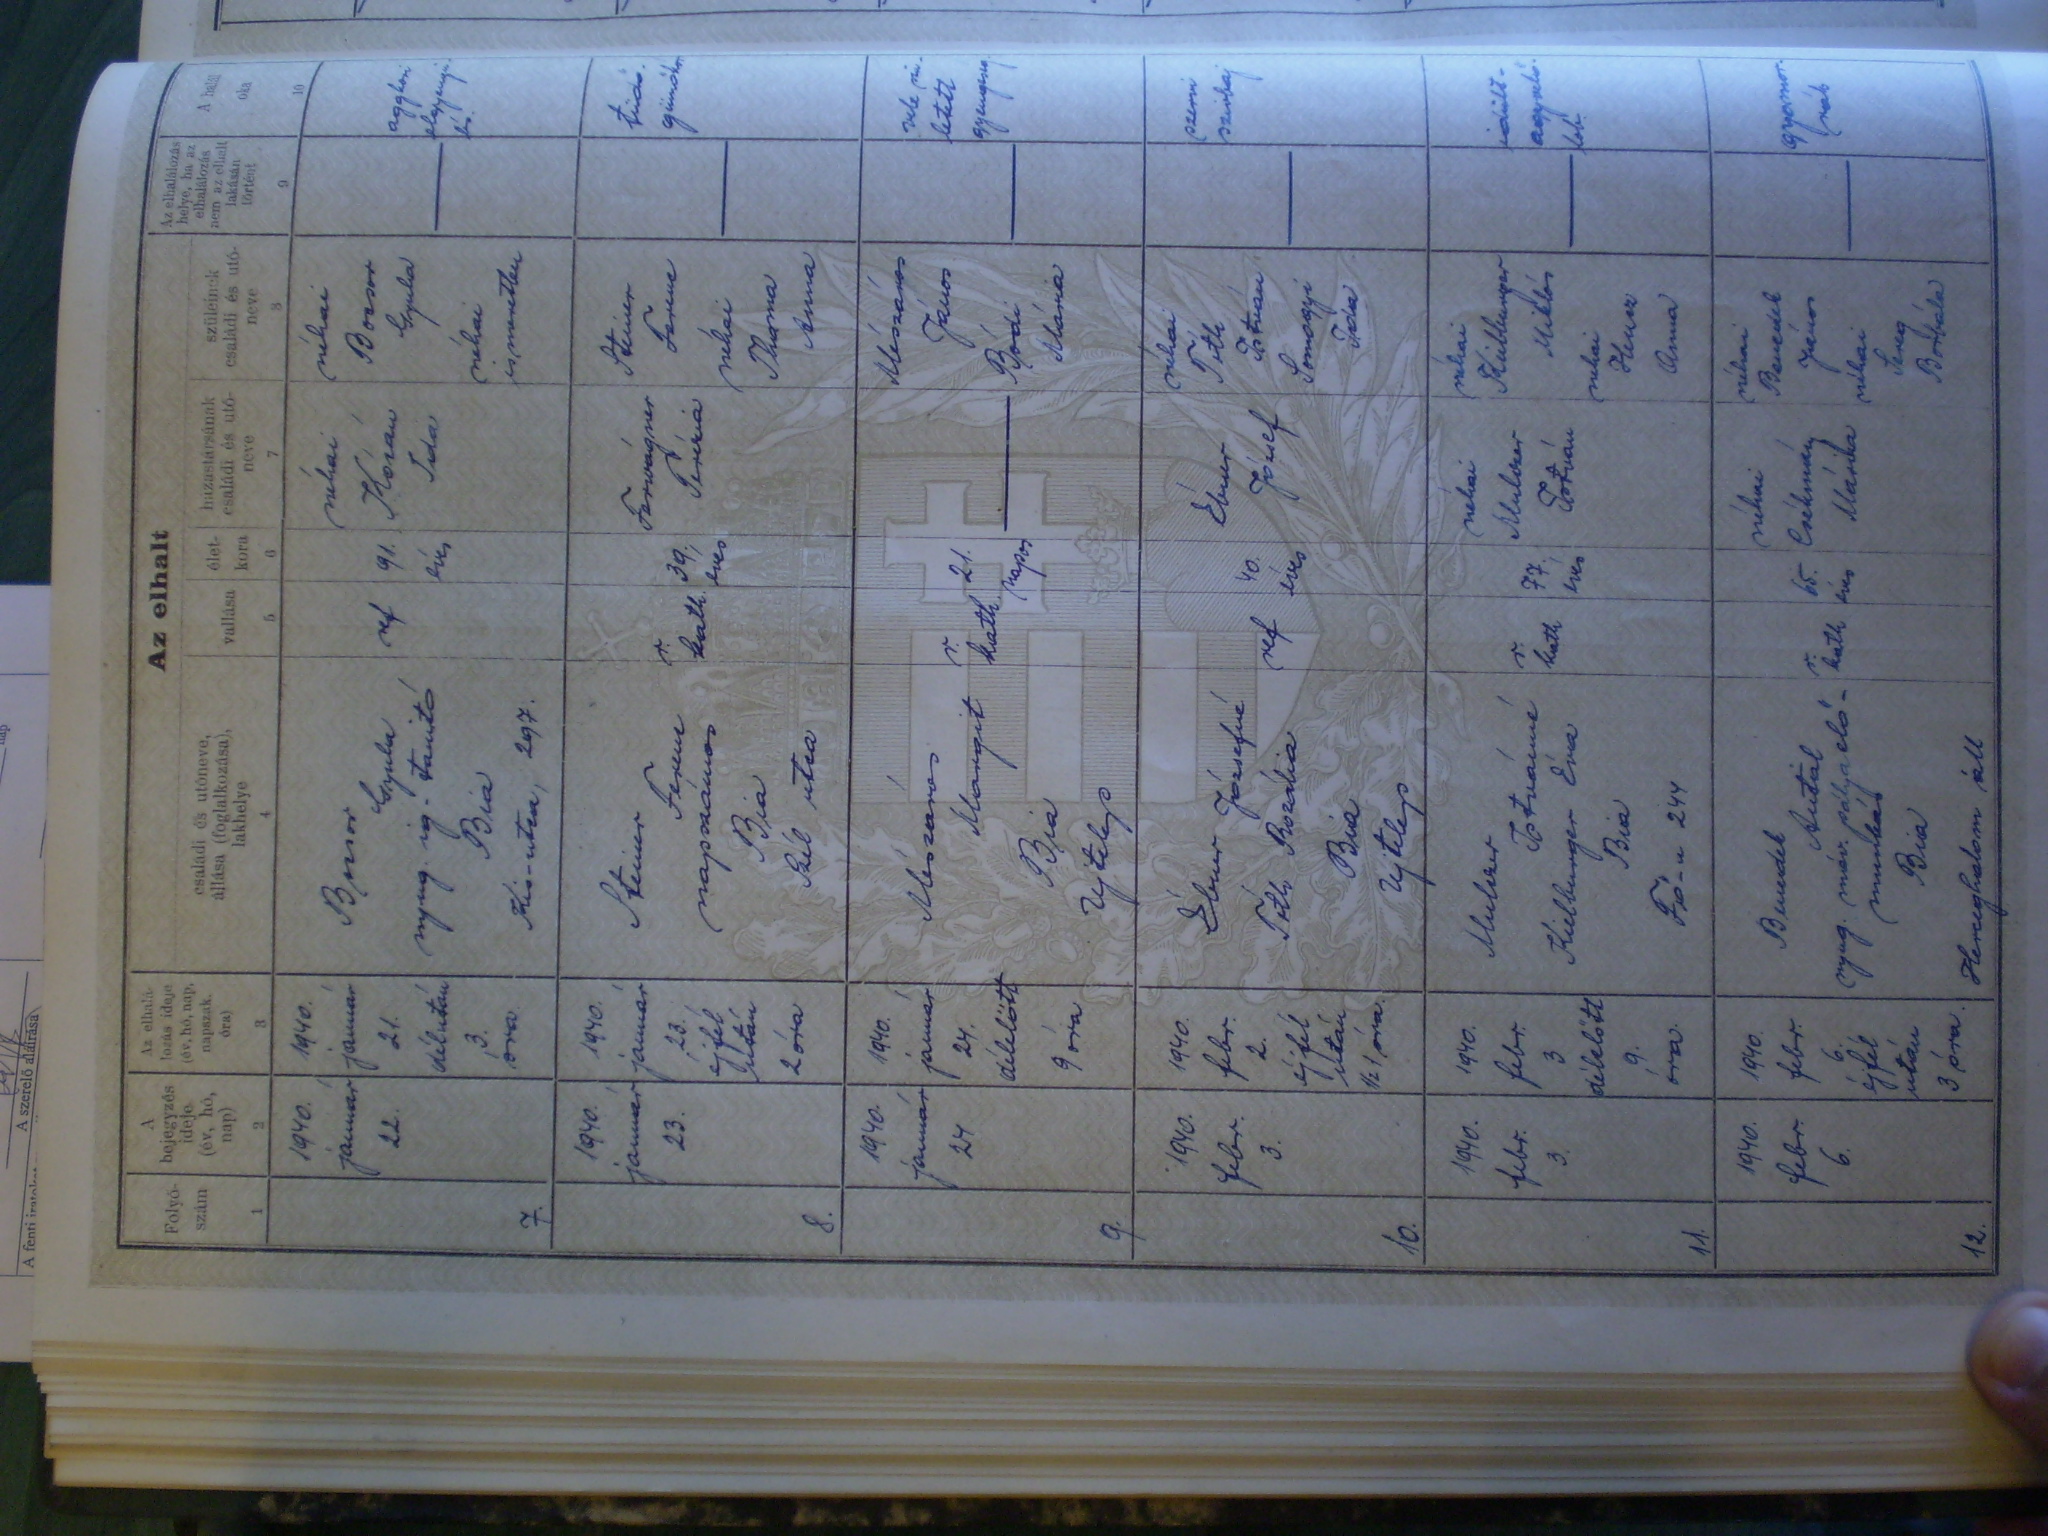 Az elhalt
Folyó-
szám
A
bejegyzés
ideje
(év, hó,
nap)
Az elhalá-
lozás ideje
(év, hó, nap,
napszak,
óra)
családi és utóneve,
állása (foglalkozása),
lakhelye
vallása
élet-
kora
házastársának
családi és utó-
neve
szüleinek
családi és utó-
neve
Az elhalálozás
helye, ha az
elhalálozás
nem az elhalt
lakásán
történt
A halál
oka
1
2
3
4
5
6
7
8
9
10
7.
1940.
január
22.
1940.
január
21.
délután
3.
óra.
Bocsor
Gyula
nyug. ig-tanító
Bia
Kis-utca, 297.
ref
91.
éves
néhai
Korán
Ida
néhai
Bocsor
Gyula
néhai
ismeretlen
aggkori
elgyengü-
lés.
8.
1940.
január
23.
1940.
január
23.
éjfél
után
2 óra
Steiner
Ferenc
napszámos
Bia
Szél utca
r.
kath.
39,
éves
Terézia
Steiner
Ferenc
néhai
Thoma
Anna
tüdő-
gümőkór
9.
1940.
január
24
1940.
január
24.
délelőtt
9 óra
Mészáros
Margit
Bia
Ujtelep
r.
kath
21.
napos
Mészáros
János
Bódi
Mária
vele szü-
letett
gyengeség
10.
1940.
febr.
3.
1940.
febr.
2.
éjfél
után
óra.
Ébner Józsefné
Tóth Rozália
Bia
Ujtelep
ref
40.
éves
Ébner
József
néhai
Tóth
István
Somogyi
szervi
szívbaj
11.
1940.
febr.
3.
1940.
febr.
3
délelőtt
9.
óra.
Istvánné
Éva
Bia
Fő-u 244
r.
kath
77,
éves
néhai
István
néhai
Miklós
néhai
Anna
12.
1940.
febr.
6.
1940.
febr.
6.
éjfél
után
3 óra.
Benedek
Antal
nyug. máv. pályaelő-
munkás
Bia
Herceghalom áll
r.
kath
65.
éves
néhai
Márta
néhai
Benedek
János
néhai
Borbála
gyomor-
rák
A szerelő aláírása
A fenti iratokat
nap